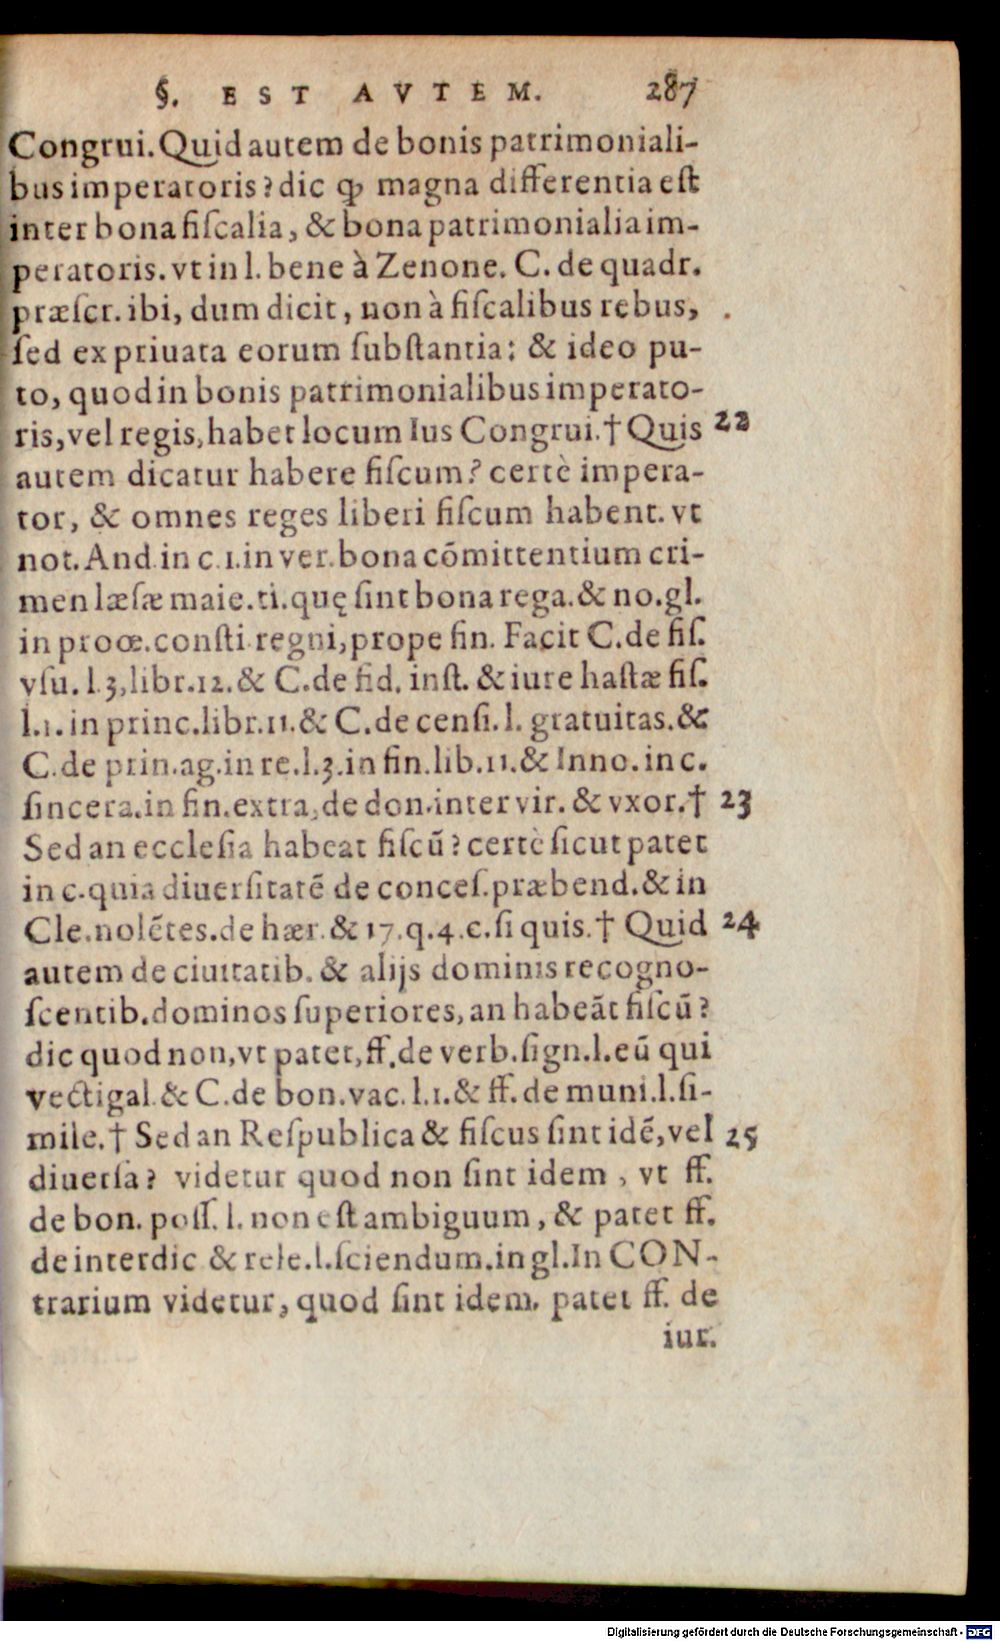 §. EST AVTEM. 287
Congrui. Quid autem de bonis patrimoniali-
bus imperatoris? dic ꝙ magna differentia eſt
inter bona fiſcalia, & bona patrimonialia im-
peratoris. vt in l. bene à Zenone. C. de quadr.
præſcr. ibi, dum dicit, non à fiſcalibus rebus,
ſed ex priuata eorum ſubſtantia: & ideo pu-
to, quod in bonis patrimonialibus imperato-
ris, vel regis, habet locum Ius Congrui.† Quis 22
autem dicatur habere fiſcum? certè impera-
tor, & omnes reges liberi fiſcum habent. vt
not. And. in c. 1. in ver. bona cõmittentium cri-
men læſæ maie. ti. quę ſint bona rega. & no. gl.
in proœ. conſti. regni, prope fin. Facit C. de fiſ.
vſu. l. 3, libr. 12. & C. de fid. inſt. & iure haſtæ fiſ.
l. 1. in princ. libr. 11. & C. de cenſi. l. gratuitas. &
C. de prin. ag. in re. l. 3. in fin. lib. 11. & Inno. in c.
ſincera. in fin. extra, de don. inter vir. & vxor.† 23
Sed an eccleſia habeat fiſcũ? certè ſicut patet
in c. quia diuerſitatẽ de conceſ. præbend. & in
Cle. nolẽtes. de hær. & 17. q. 4. c. ſi quis.† Quid 24
autem de ciuitatib. & alijs dominis recogno-
ſcentib. dominos ſuperiores, an habeãt fiſcũ?
dic quod non, vt patet, ff. de verb. ſign. l. eũ qui
vectigal. & C. de bon. vac. l. 1. & ff. de muni. l. ſi-
mile.† Sed an Reſpublica & fiſcus ſint idẽ, vel 25
diuerſa? videtur quod non ſint idem, vt ff.
de bon. poſſ. l. non eſt ambiguum, & patet ff.
de interdic & rele. l. ſciendum. in gl. In CON-
trarium videtur, quod ſint idem. patet ff. de
iur.
Digitalisierung gefördert durch die Deutsche Forschungsgemeinschaft - DFG